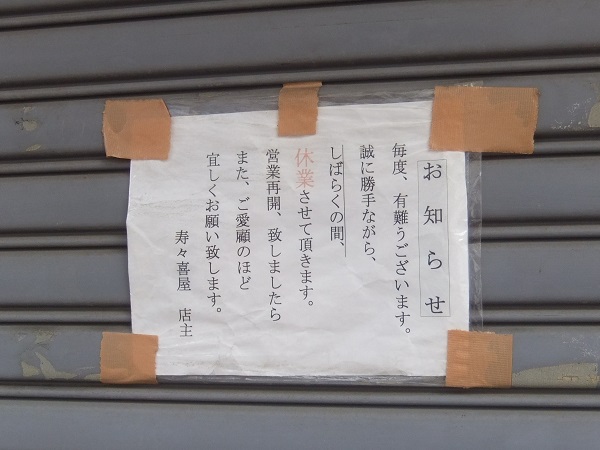 お知らせ
毎度、有難うございます。
誠に勝手ながら、
しばらくの間、
休業させて頂きます。
営業再開、致しましたら
また、ご愛顧のほど
宜しくお願い致します。
寿々喜屋 店主